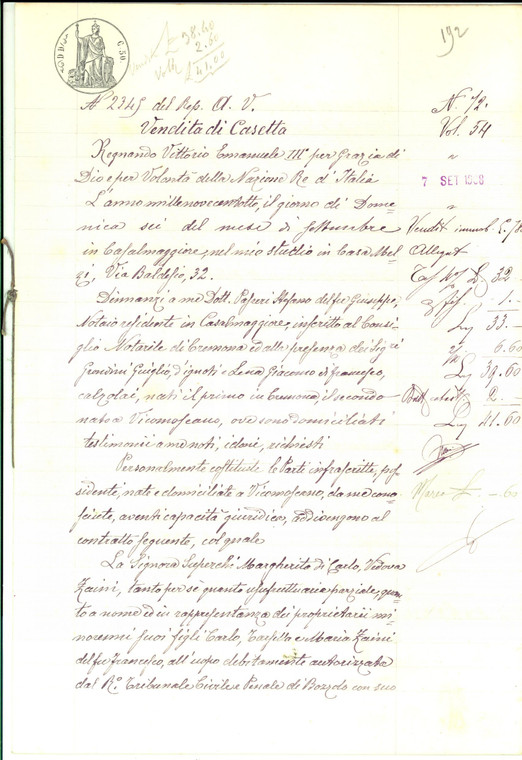 192
38.40
2.60
£ 41.00
C. 50.
N° 2345 del Rep. A. V.
N. 72.
Vendita di Casetta
Vol. 54
Regnando Vittorio Emanuele III° per Grazia di
Dio e per Volontà della Nazione Re d'Italia
7 SET 1908
L'anno millenovecentotto, il giorno di Dome=
nica sei del mese di Settembre
Vendit immob.
in Casalmaggiore, nel mio studio in Casa Mel=
Allegat
zi, Via Baldesio, 32.
32.
Dinnanzi a me Dott. Paseri Stefano del fu Giuseppe,
1.-
Notaio residente in Casalmaggiore, inscritto al Consi=
33.-
glio Notarile di Cremona ed alla presenza dei Sigri
6.60
Gravini Guiglio, d'ignoti e Lena Giacomo di Francesco,
39.60
calzolai, nati il primo in Cremona, il secondo
2.-
nato a Vicomoscano, ove sono domiciliati
41.60
testimonii a me noti, idonei, richiesti
Personalmente costituite le Parti infrascritte, pos=
sidente, nate e domiciliate a Vicomoscano, da me cono=
60
sciute, aventi capacità giuridica, addivengono al
contratto seguente, col quale
La Signora Superchi Margherita di Carlo, Vedova
Zaini, tanto per sè quanto usufruttuaria parziale, quan=
to a nome ed in rappresentanza dei proprietarii mi=
norenni suoi figli Carlo, e Maria Zaini
del fu Francesco, all'uopo debitamente autorizzata
dal R°. Tribunale Civile e Penale di Bozzolo con suo